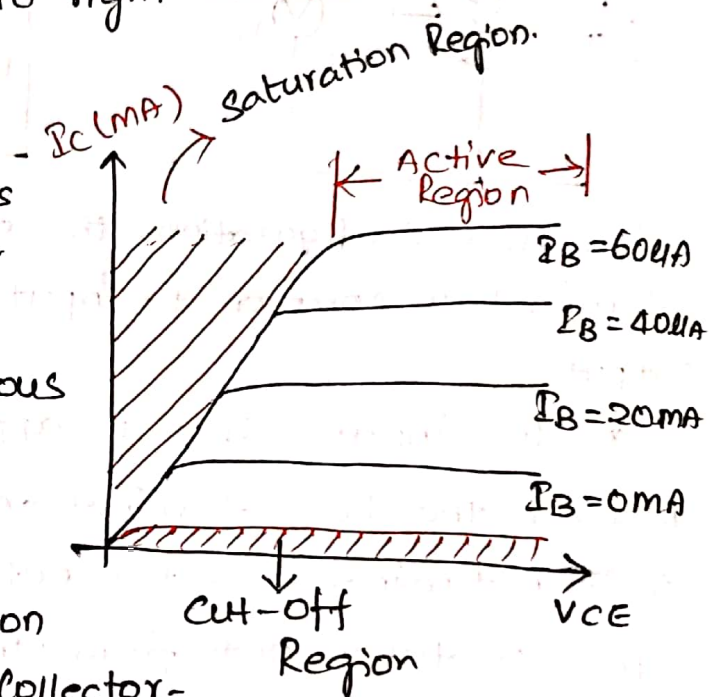 Saturation Region.
- Ic (mA)
s
Active
Region
IB = 60μA
IB = 40μA
ous
IB = 20mA
IB = 0mA
Cut-off
Region
VCE
on
Collector-